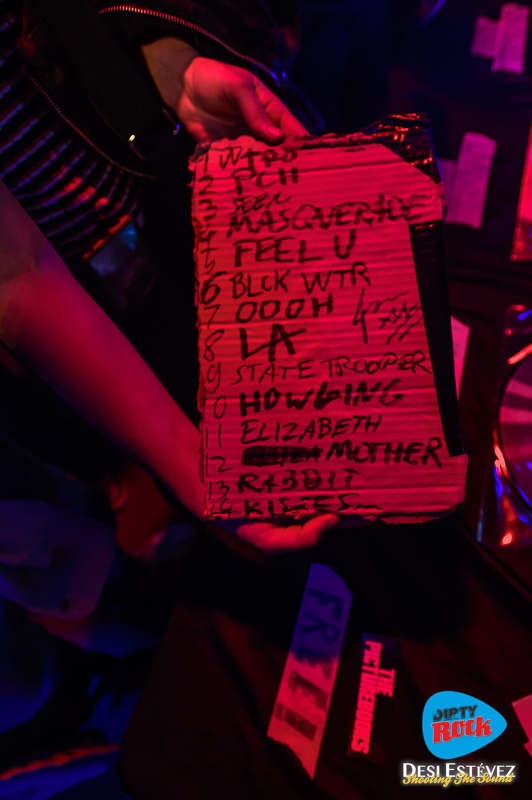 1 WTDS
2 PCH
3 SEEN
4 MASQUERADE
5 FEEL U
6 BLCK WTR
7 OOOH
8 LA
9 STATE TROOPER
10 HOWLING
11 ELIZABETH
12 MOTHER
13 RABBIT
14 KISSES
THE PICTUREBOOKS
DIRTY
Rock
DESI ESTÉVEZ
Shooting The Sound